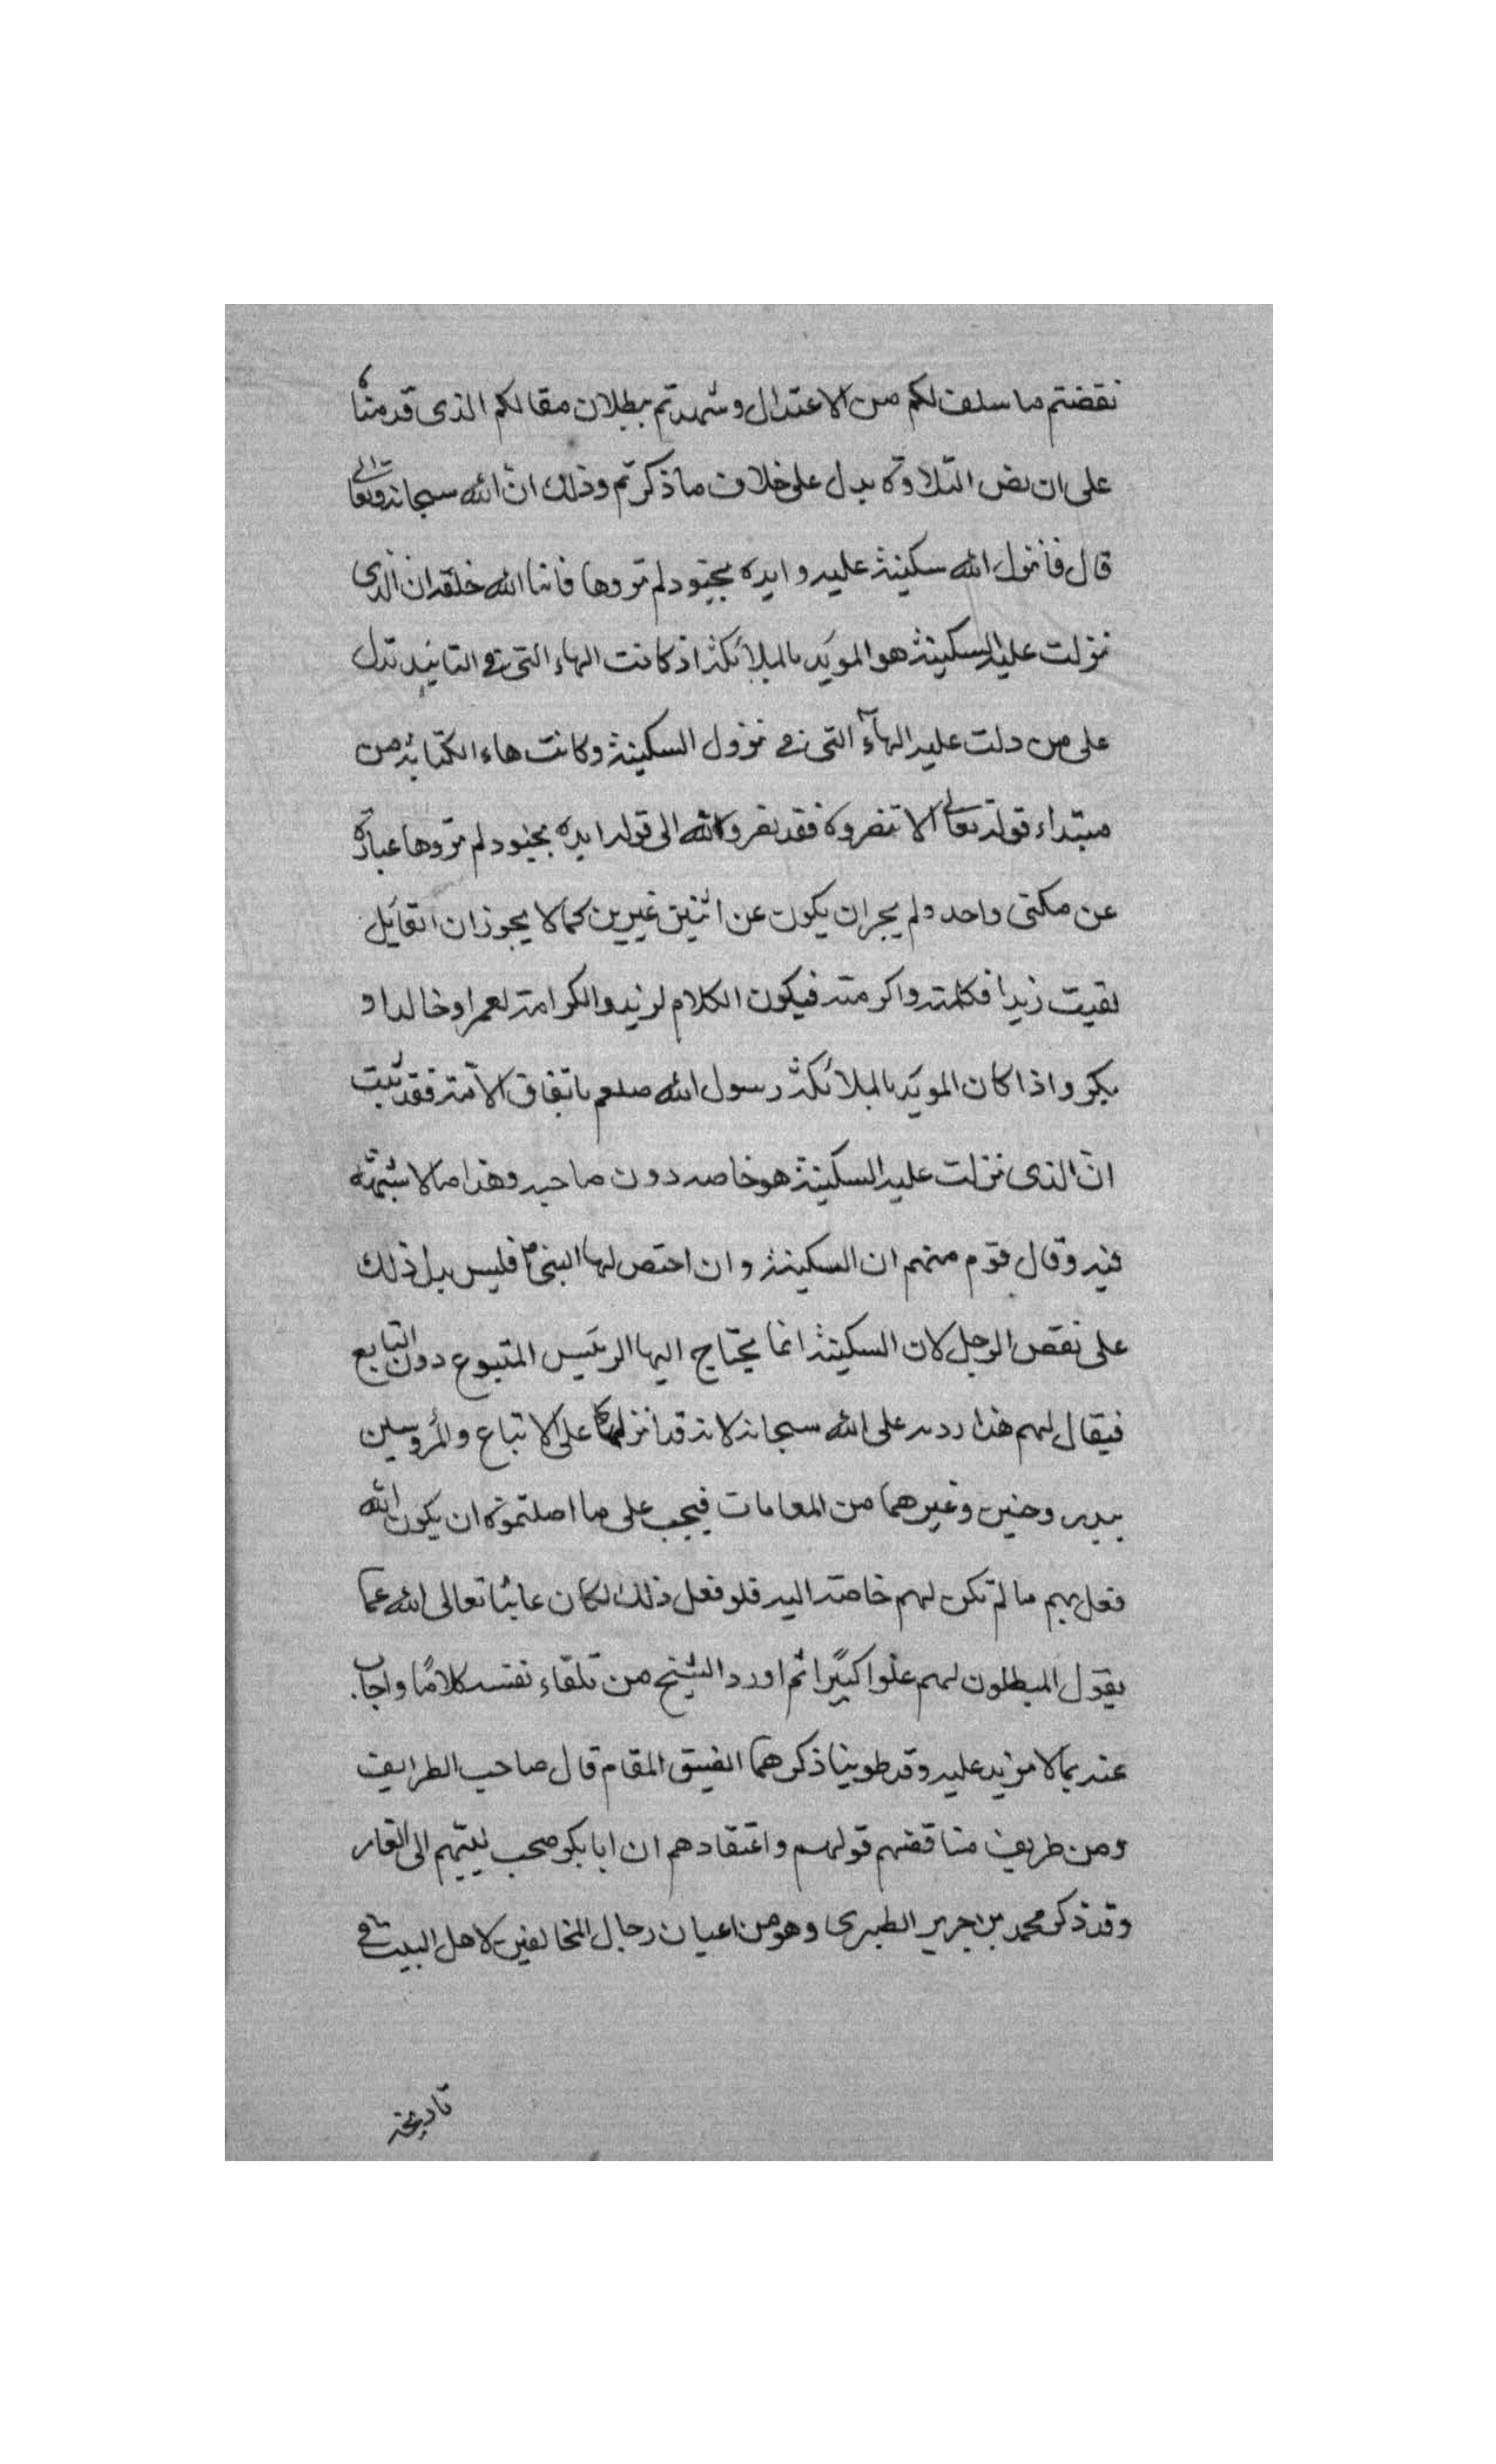 نقضتم ما سلف لكم من الاعتدال وشهدتم ببطلان مقالكم الذى قدمناه
على ان نص التلاوة يدل على خلاف ما ذكرتم وذلك انّ الله سبحانه وتعالى
قال فانزل الله سكينة عليه وايده بجنود لم تروها فانبا الله خلقه ان الذى
نزلت عليه السكينة هو المويّد بالملائكة اذ كانت الهاء التى فى التائيد تدل
على من دلت عليه الهآء التى فى نزول السكينة وكانت هاء الكتابة من
مبتداء قوله تعالى الا تنصروه فقد نصروه الله الى قوله ايده بجنود لم تروها عبارة
عن مكنى واحد ولم يجز ان يكون عن اثنين غيرين كما لا يجوز ان القايل
لقيت زيدا فكلمته واكرمته فيكون الكلام لزيد والكرامة لعمر او خالدا و
بكر واذا كان المويّد بالملائكة رسول الله صلعم باتفاق الامّة فقد ثبت
انّ الذى نزلت عليه السكينة هو خاصه دون صاحبه وهذا ما لا شبهة
فيه وقال قوم منهم ان السكينة وان اختص لها النبى ص فليس يدل ذلك
على نقص الرجل لان السكينة انما يحتاج اليها الرئيس المتبوع دون التابع
فيقال لهم هذا رد على الله سبحانه لانه قد انزلها على الاتباع والمرؤسين
ببدر وحنين وغيرهما من المقامات فيجب على ما اصلتموه ان يكون الله
فعل بهم ما لم تكن لهم خاصة اليه فلو فعل ذلك لكان عابثا تعالى الله عما
يقول المبطلون لهم علوا كبيرًا ثم اورد الشيخ من تلقاء نفسه كلامًا واجاب
عنه بما لا مزيد عليه وقد طوينا ذكرهما لضيق المقام قال صاحب الطرايف
ومن طريف مناقضتهم قولهم واعتقادهم ان ابا بكر صحب نبيهم الى الغار
وقد ذكر محمد بن جرير الطبرى وهو من اعيان رجال المخالفين لاهل البيت فى
تاريخه